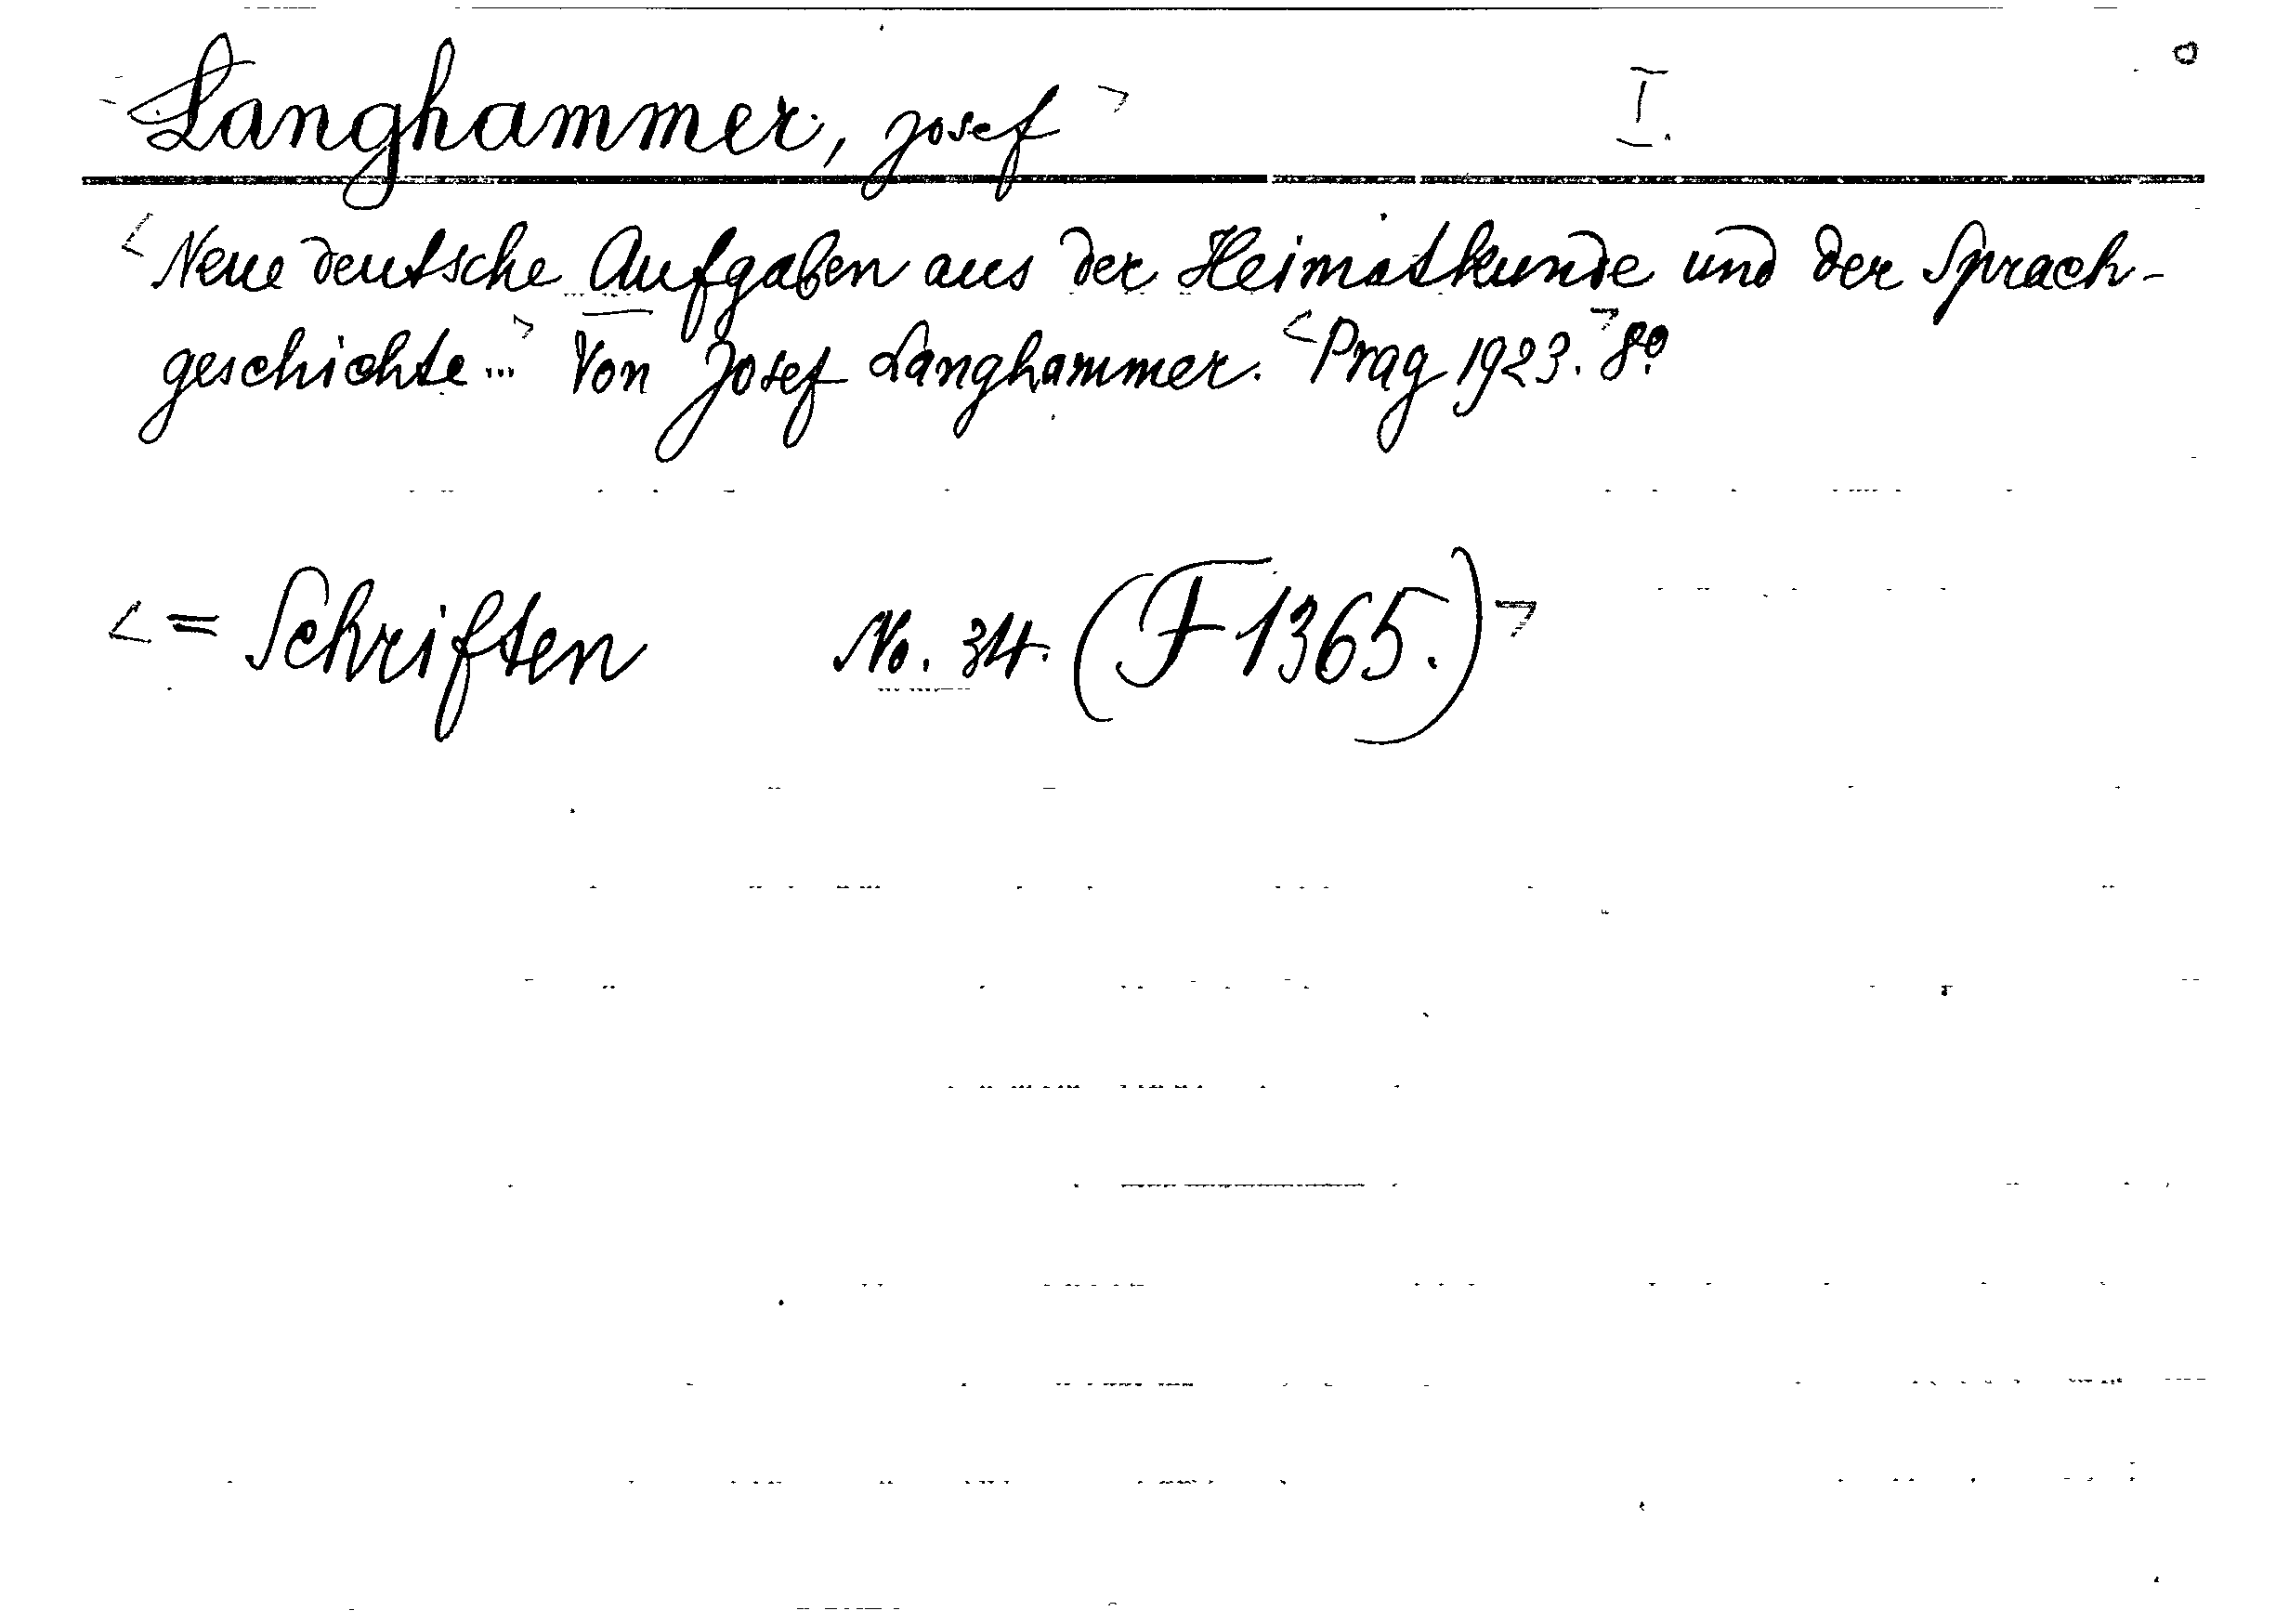 Langhammer, Josef> I.
<Neue deutsche Aufgaben aus der Heimatkunde und der Sprach-
geschichte...> Von Josef Langhammer. <Prag 1923.> 8º.
<= Schriften No. 34. (F 1365.)>